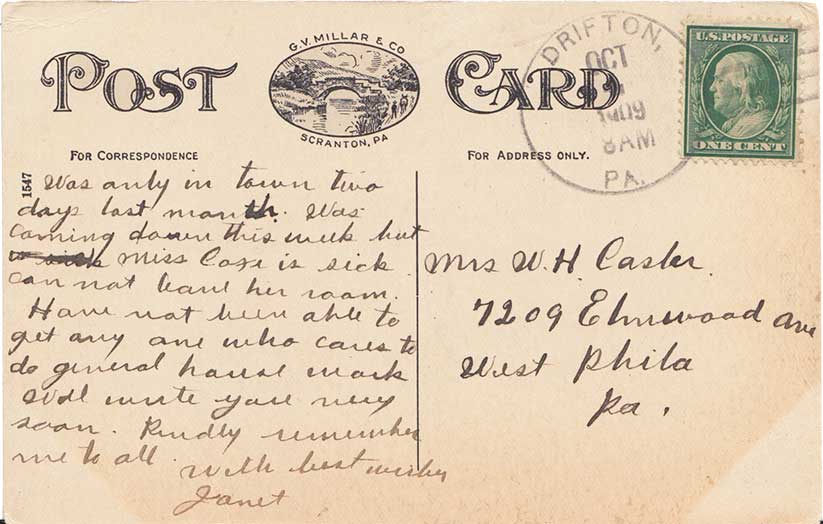 POST CARD
G.V. MILLAR & CO
SCRANTON, PA
DRIFTON,
OCT
1909
8AM
PA.
U.S. POSTAGE
ONE CENT
FOR CORRESPONDENCE
FOR ADDRESS ONLY.
1547
Was only in town two
days last month. Was
coming down this week but
Miss Coxe is sick
can not leave her room.
Have not been able to
get any one who cares to
do general house work
Will write you very
soon. Kindly remember
me to all. With best wishes
Janet
Mrs W. H. Casler.
7209 Elmwood Ave
West Phila
Pa.